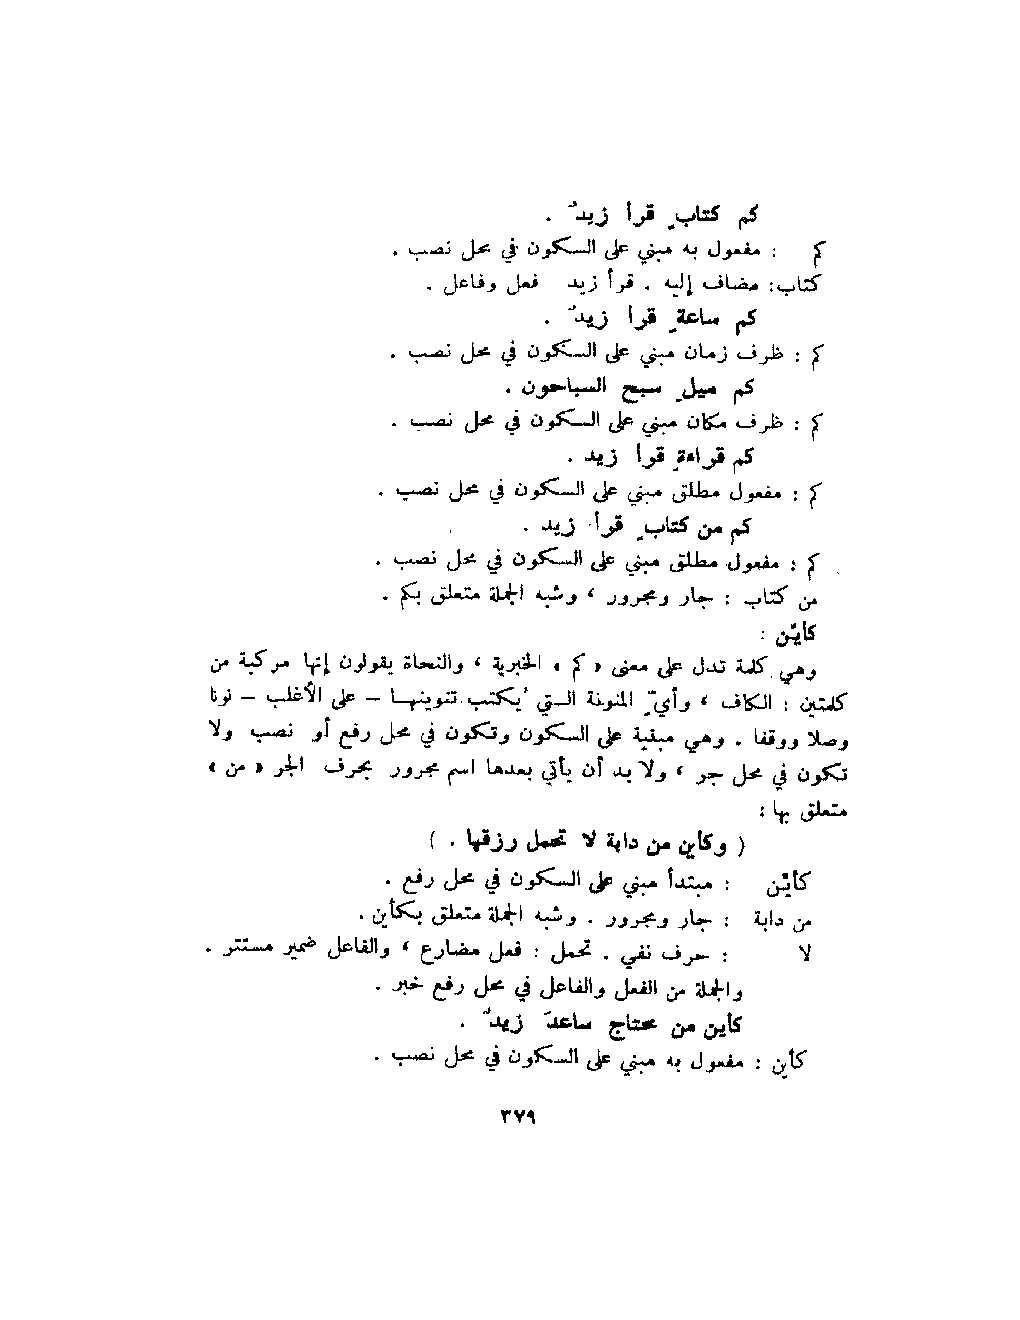 كم كتابٍ قرأ زيدٌ .
كم : مفعول به مبني على السكون في محل نصب .
كتاب: مضاف إليه . قرأ زيد فعل وفاعل .
كم ساعةٍ قرأ زيدٌ .
كم : ظرف زمان مبني على السكون في محل نصب .
كم ميلٍ سبح السباحون .
كم : ظرف مكان مبني على السكون في محل نصب .
كم قراءةٍ قرأ زيد .
كم : مفعول مطلق مبني على السكون في محل نصب .
كم من كتابٍ قرأ زيد .
كم : مفعول مطلق مبني على السكون في محل نصب .
من كتاب : جار ومجرور ، وشبه الجملة متعلق بكم .
كأيّن :
وهي كلمة تدل على معنى « كم » الخبرية ، والنحاة يقولون إنها مركبة من
كلمتين : الكاف ، وأيٍّ المنونة التي يُكتب تنوينها – على الأغلب – نونا
وصلا ووقفا . وهي مبنية على السكون وتكون في محل رفع أو نصب ولا
تكون في محل جر ، ولا بد أن يأتي بعدها اسم مجرور بحرف الجر « من »
متعلق بها :
( وكأين من دابة لا تحمل رزقها . )
كأيّن : مبتدأ مبني على السكون في محل رفع .
من دابة : جار ومجرور . وشبه الجملة متعلق بكأين .
لا : حرف نفي . تحمل : فعل مضارع ، والفاعل ضمير مستتر .
والجملة من الفعل والفاعل في محل رفع خبر .
كأين من محتاج ساعدَ زيدٌ .
كأين : مفعول به مبني على السكون في محل نصب .
٣٧٩